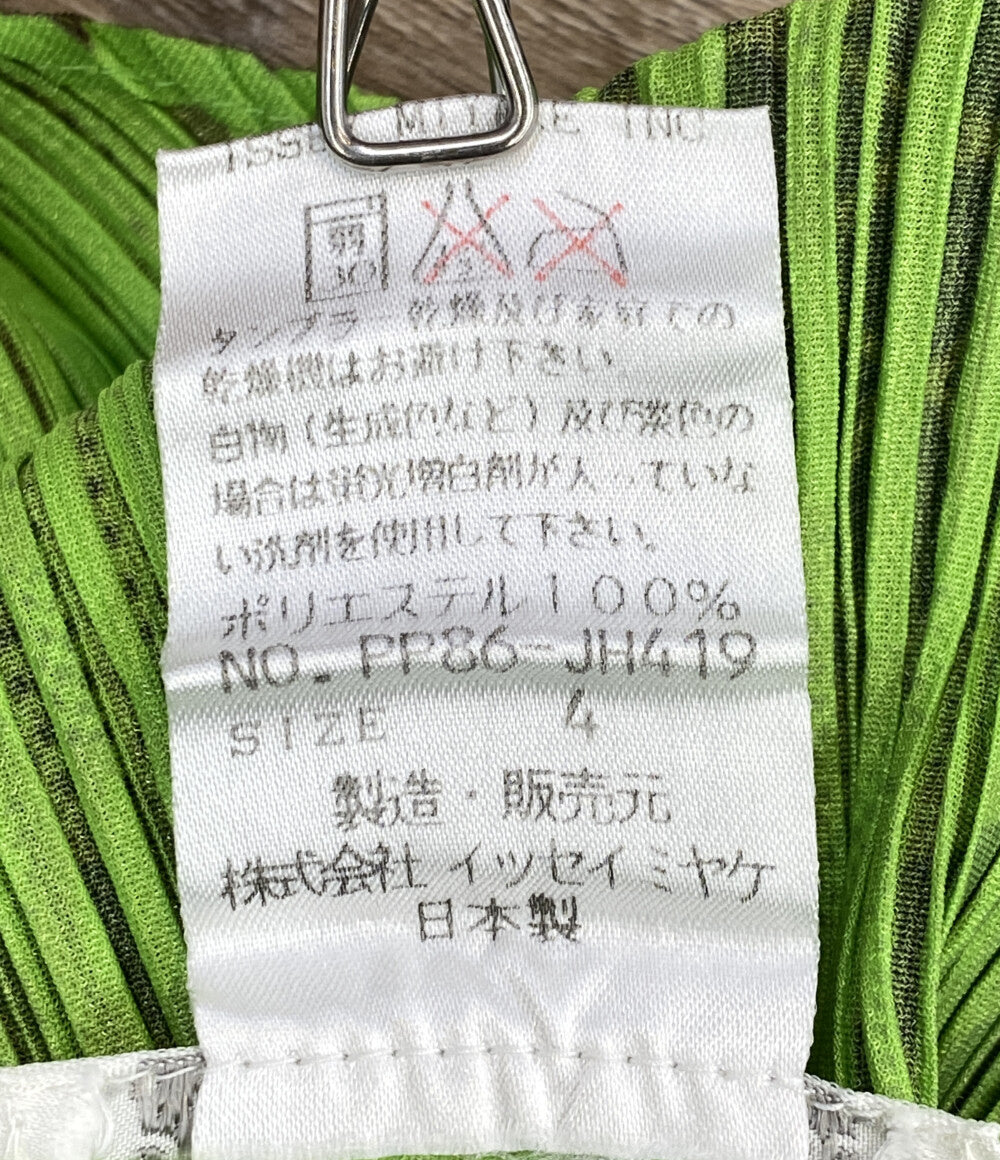 MIYAKE INC
弱
30
タンブラー乾燥及びお宅での
乾燥機はお避け下さい
白物（生成色など）及び淡色の
場合は蛍光増白剤が入っていな
い洗剤を使用して下さい。
ポリエステル100%
NO. PP86-JH419
SIZE 4
製造・販売元
株式会社イッセイミヤケ
日本製